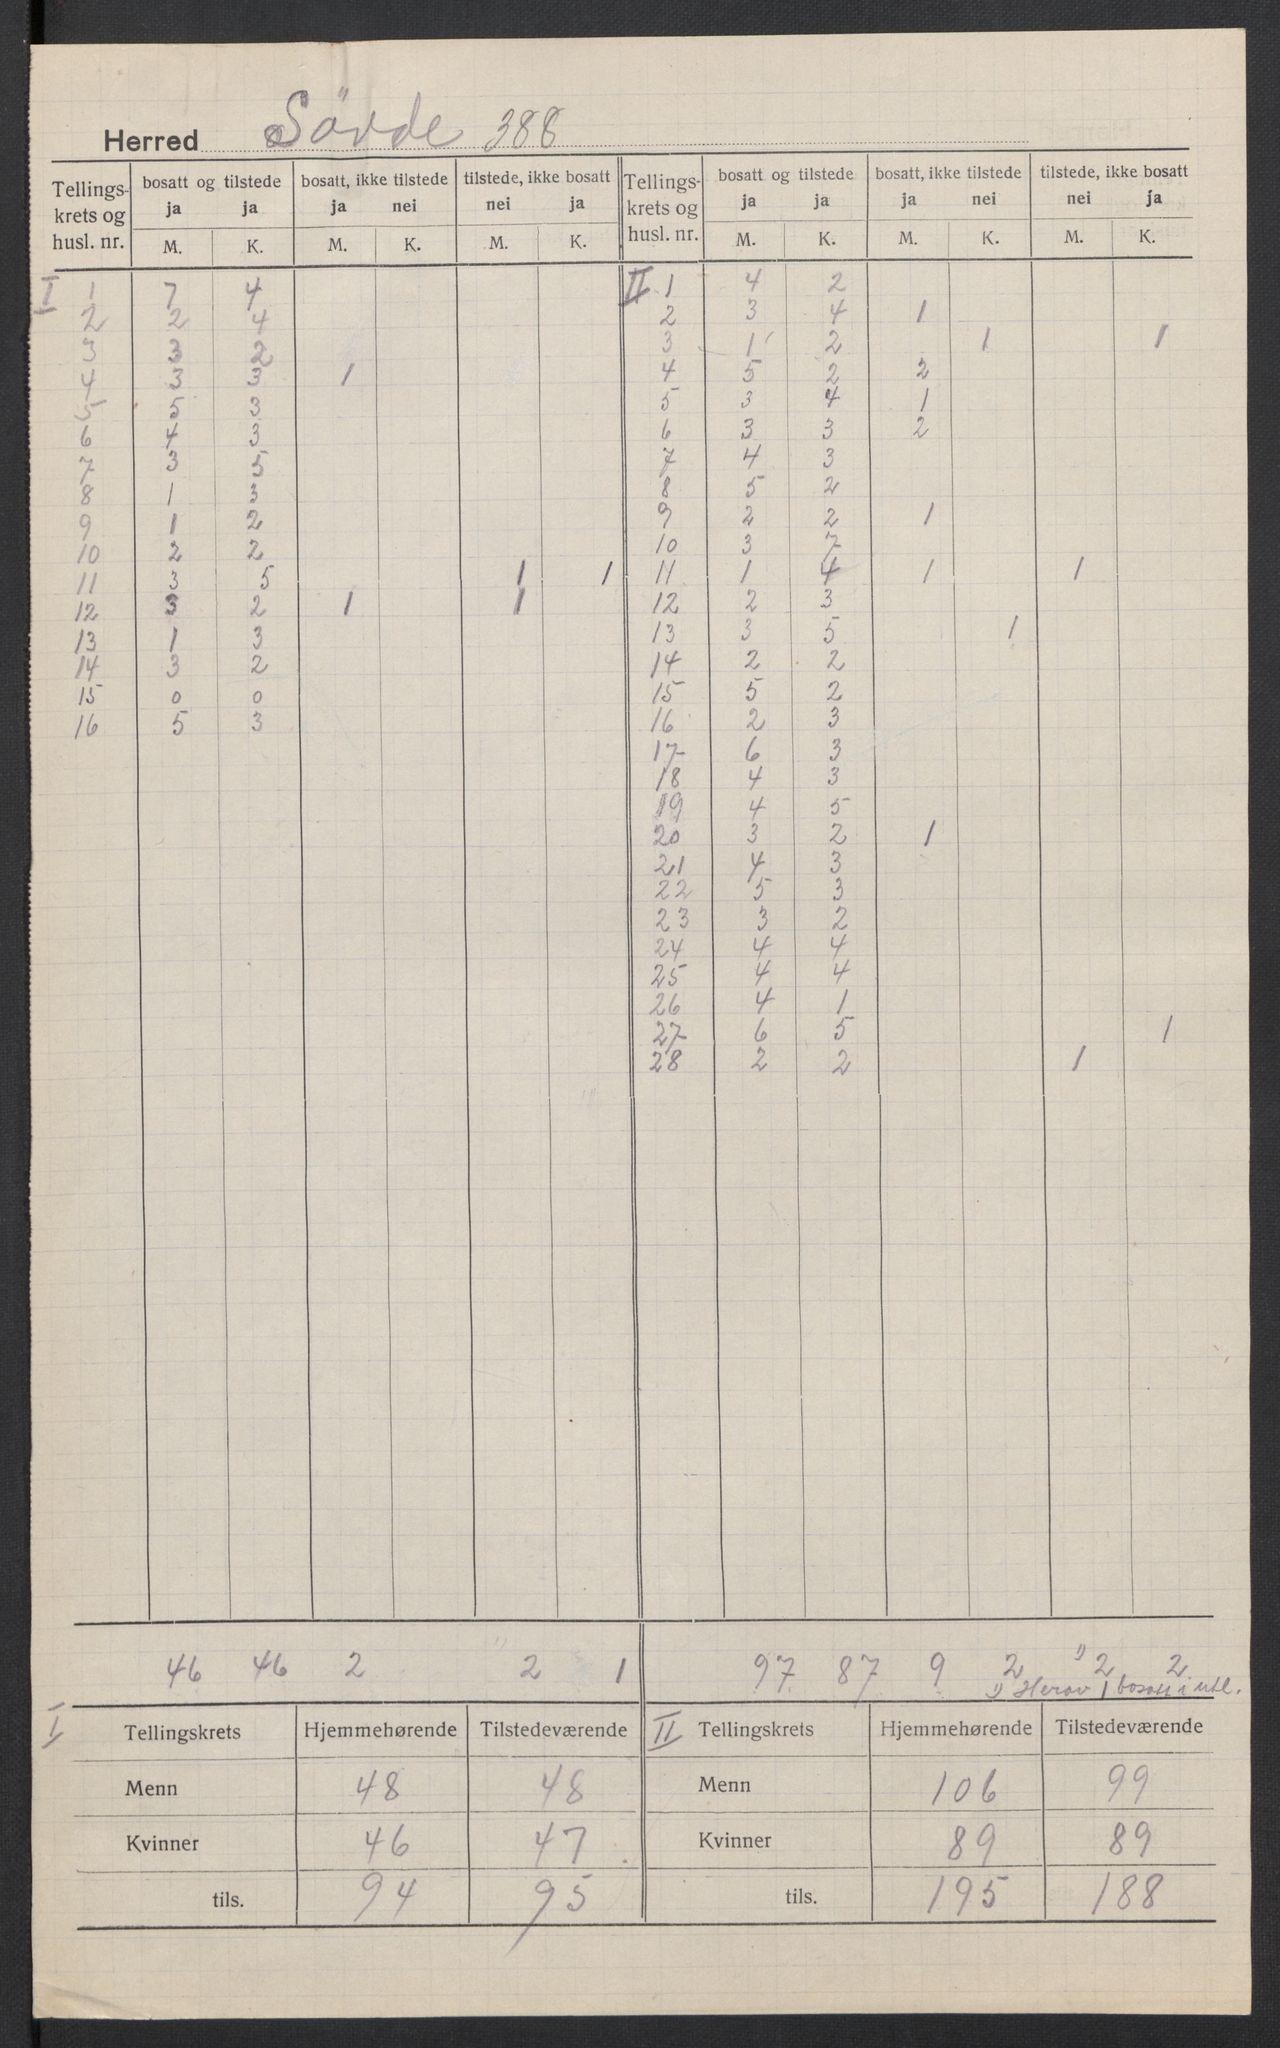 Herred Sövde 388
Tellings- krets og husl. nr. | bosatt og tilstede ja ja M. K. | bosatt, ikke tilstede ja nei M. K. | tilstede, ikke bosatt nei ja M. K. | Tellings- krets og husl. nr. | bosatt og tilstede ja ja M. K. | bosatt, ikke tilstede ja nei M. K. | tilstede, ikke bosatt nei ja M. K.
I 1 7 4 | II 1 4 2
2 2 4 | 2 3 4 1
3 3 2 | 3 1 2 1 1
4 3 3 1 | 4 5 2 2
5 5 3 | 5 3 4 1
6 4 3 | 6 3 3 2
7 3 5 | 7 4 3
8 1 3 | 8 5 2
9 1 2 | 9 2 2 1
10 2 2 | 10 3 7
11 3 5 1 1 | 11 1 4 1 1
12 3 2 1 1 | 12 2 3
13 1 3 | 13 3 5 1
14 3 2 | 14 2 2
15 0 0 | 15 5 2
16 5 3 | 16 2 3
17 6 3
18 4 3
19 4 5
20 3 2 1
21 4 3
22 5 3
23 3 2
24 4 4
25 4 4
26 4 1
27 6 5 1
28 2 2 1
46 46 2 " 2 1 | 97 87 9 2 " 2 2
1) Herav 1 bosatt i utl.
I Tellingskrets | Hjemmehørende | Tilstedeværende | II Tellingskrets | Hjemmehørende | Tilstedeværende
Menn 48 48 | Menn 106 99
Kvinner 46 47 | Kvinner 89 89
tils. 94 95 | tils. 195 188